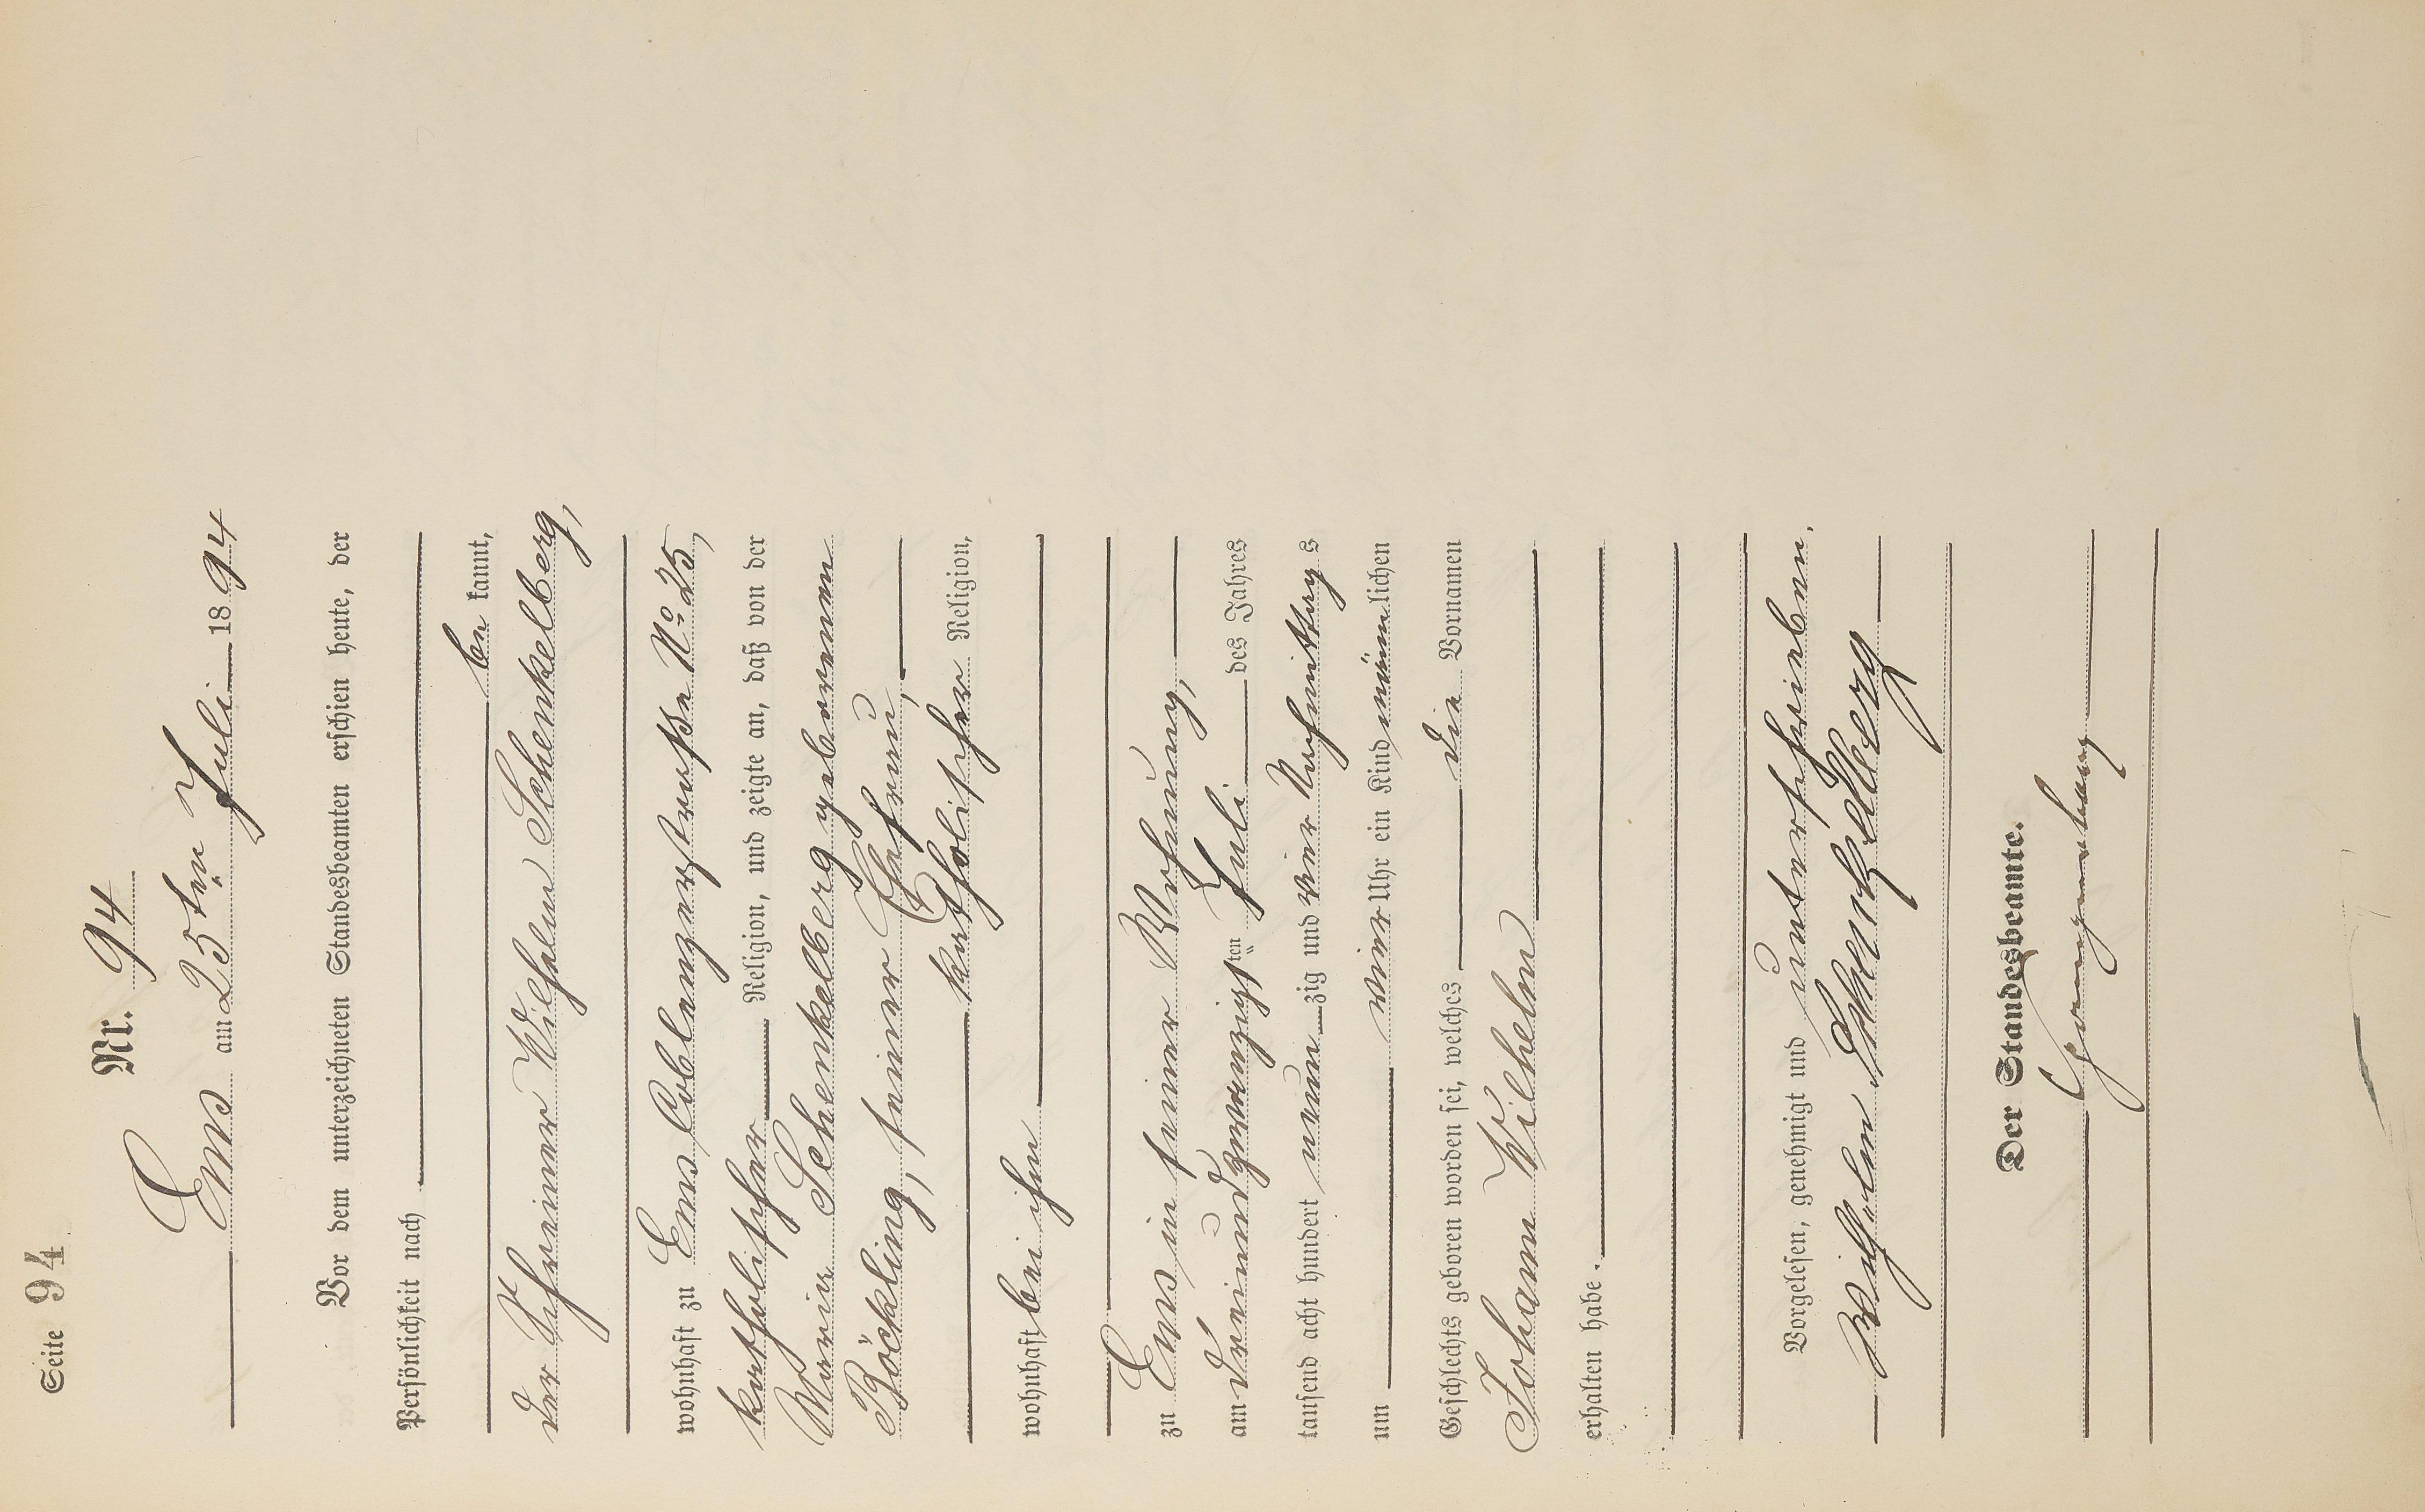 Seite 94
Nr. 94
Ems am 25ten Juli 1894
Vor dem unterzeichneten Standesbeamten erschien heute, der
Persönlichkeit nach
be kannt,
der Schreiner Wilhelm Schenkelberg,
wohnhaft zu Ems, Coblenzerstraße No 25,
katholischer Religion, und zeigte an, daß von der
Maria Schenkelberg geborenen
Böckling, seiner Ehefrau,
katholischer Religion,
wohnhaft bei ihm
zu Ems in seiner Wohnung,
am dreiundzwanzigsten Juli des Jahres
tausend acht hundert neun zig und vier Nachmittags
um vier Uhr ein Kind männlichen
Geschlechts geboren worden sei, welches die Vornamen
Johann Wilhelm
erhalten habe.
Vorgelesen, genehmigt und unterschrieben.
Wilhelm Schenkelberg
Der Standesbeamte.